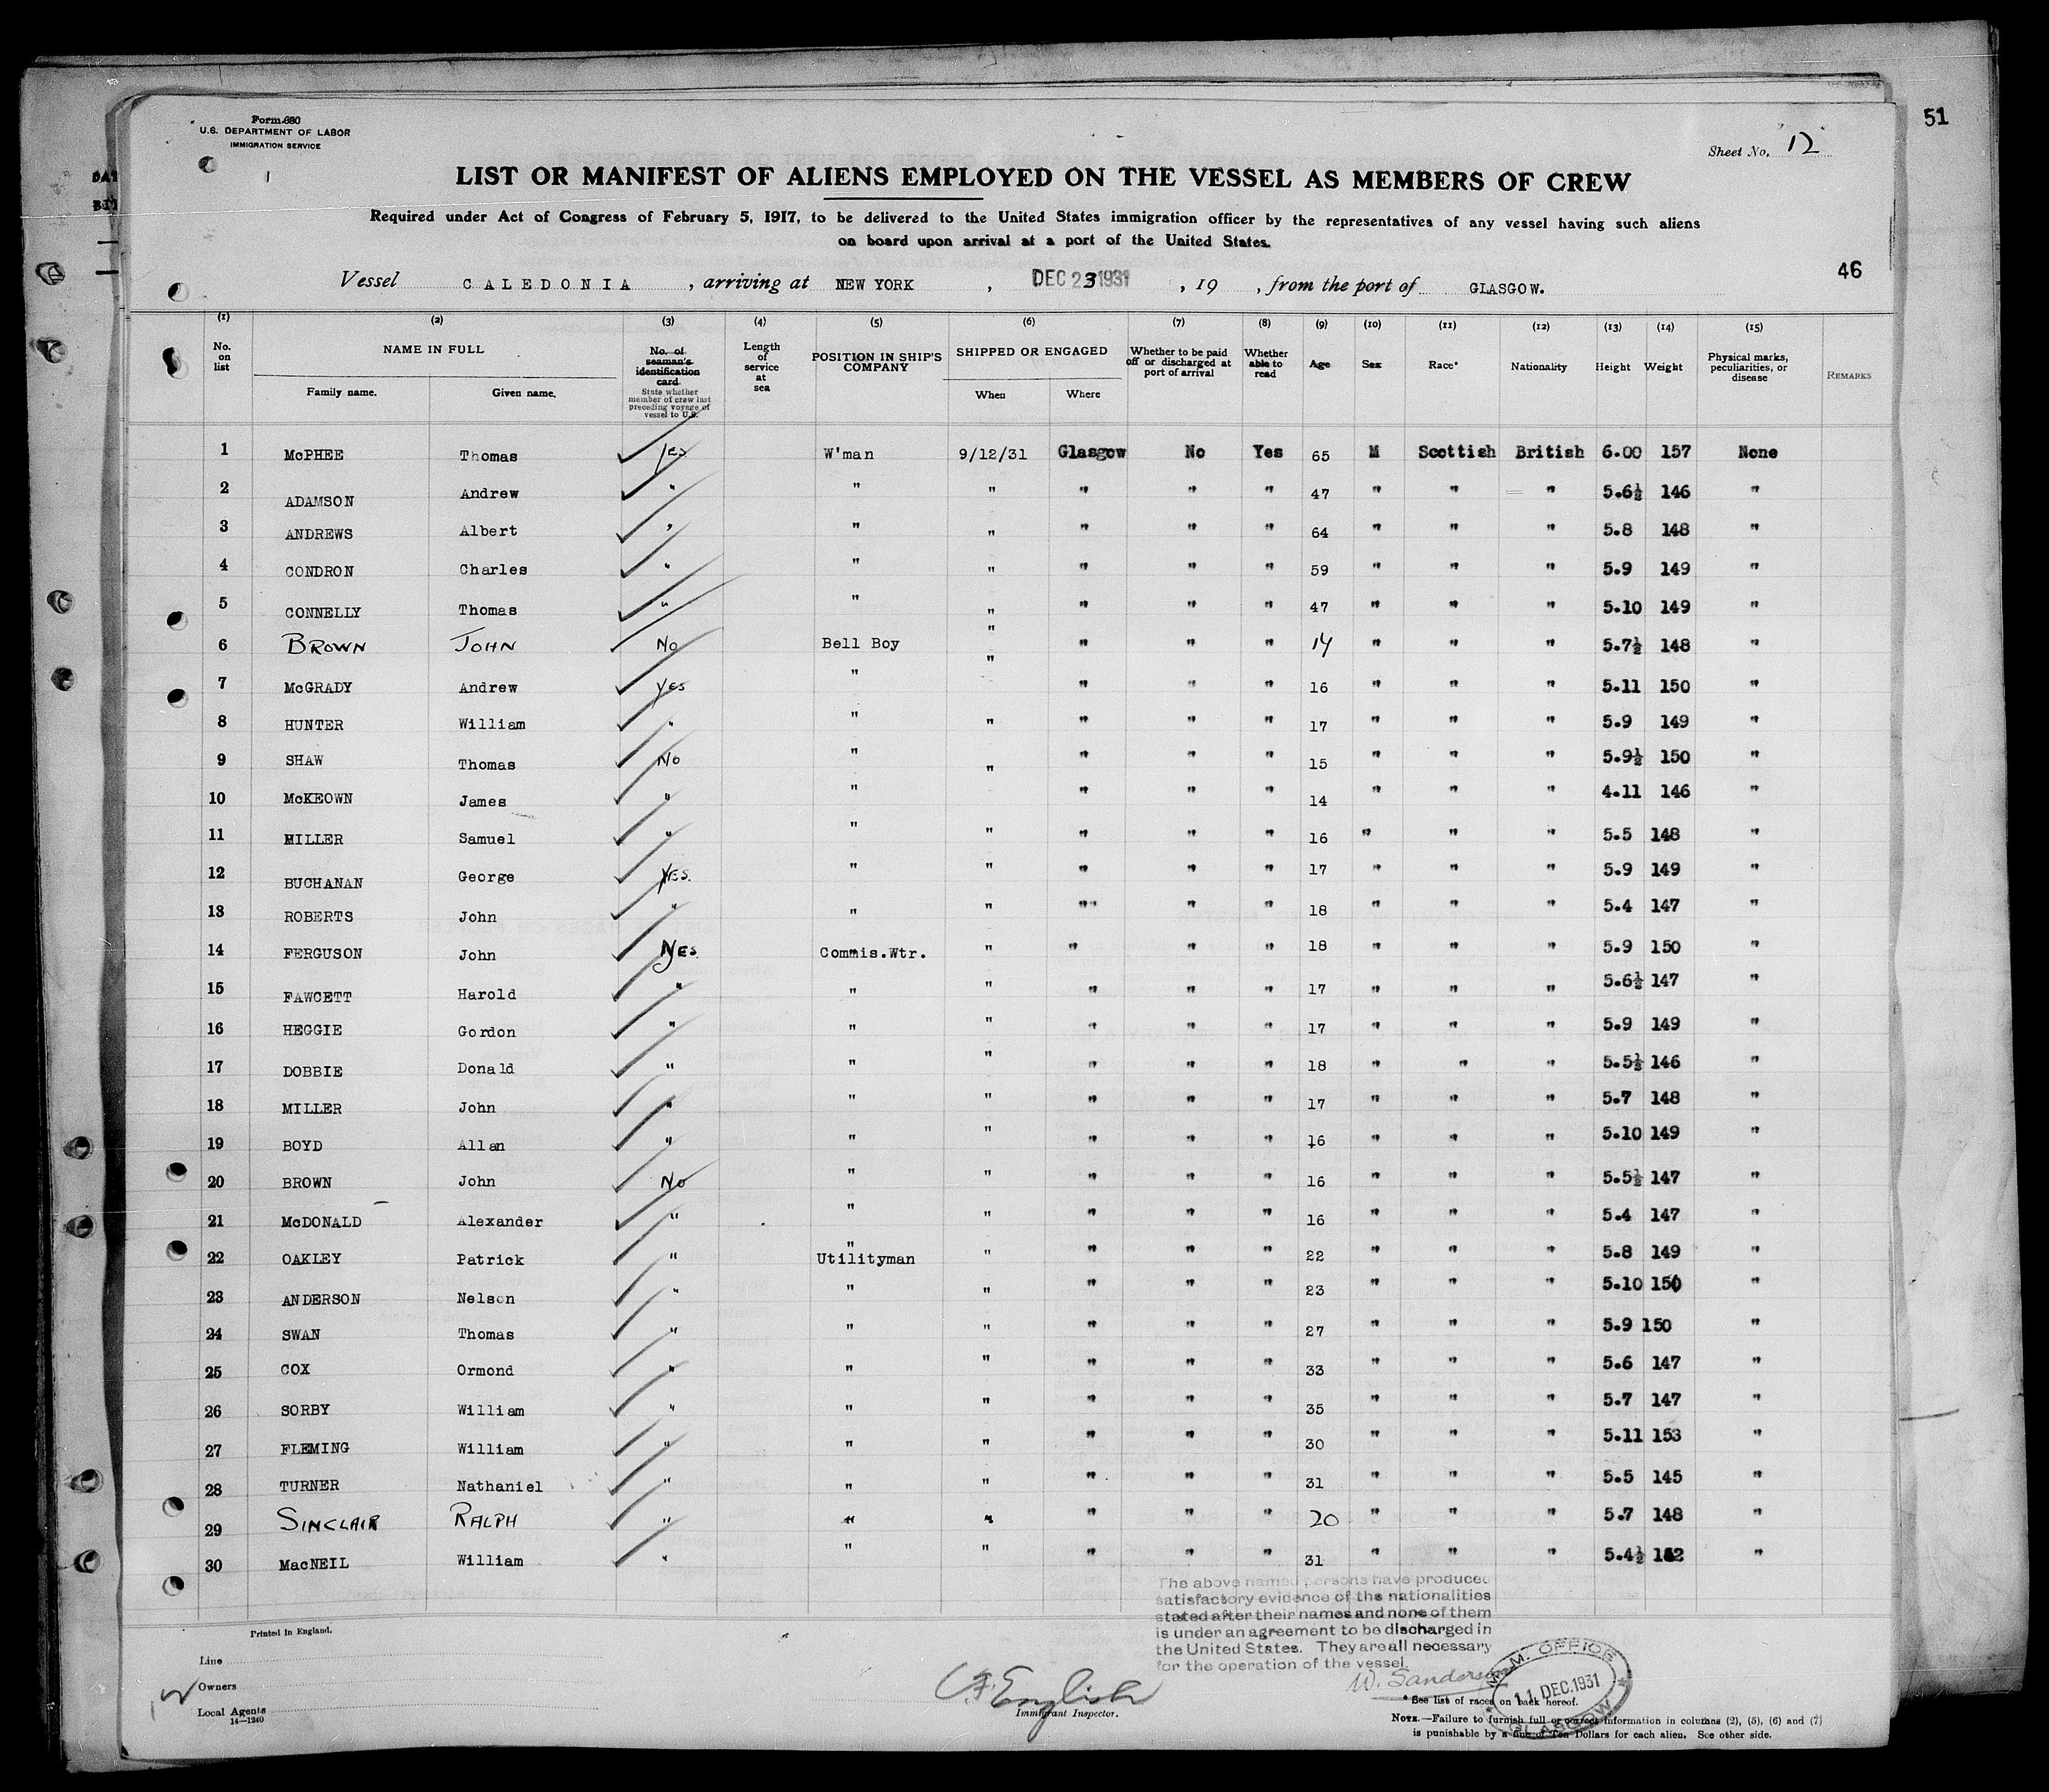 51
Form 680
U.S. DEPARTMENT OF LABOR
IMMIGRATION SERVICE
Sheet No. 12
LIST OR MANIFEST OF ALIENS EMPLOYED ON THE VESSEL AS MEMBERS OF CREW
Required under Act of Congress of February 5, 1917, to be delivered to the United States immigration officer by the representatives of any vessel having such aliens
on board upon arrival at a port of the United States.
46
Vessel CALEDONIA, arriving at NEW YORK, DEC 23 1931, 19 , from the port of GLASGOW.
(1) (2) (3) (4) (5) (6) (7) (8) (9) (10) (11) (12) (13) (14) (15)
No. on list NAME IN FULL Family name. Given name. No. of seaman's identification card State whether member of crew last preceding voyage of vessel to U.S. Length of service at sea POSITION IN SHIP'S COMPANY SHIPPED OR ENGAGED When Where Whether to be paid off or discharged at port of arrival Whether able to read Age Sex Race* Nationality Height Weight Physical marks, peculiarities, or disease REMARKS
1 McPHEE Thomas Yes W'man 9/12/31 Glasgow No Yes 65 M Scottish British 6.00 157 None
2 ADAMSON Andrew " " " " " " 47 " " " 5.6½ 146 "
3 ANDREWS Albert " " " " " " 64 " " " 5.8 148 "
4 CONDRON Charles " " " " " " 59 " " " 5.9 149 "
5 CONNELLY Thomas " " " " " " 47 " " " 5.10 149 "
6 BROWN JOHN No Bell Boy " " " " 14 " " " 5.7½ 148 "
7 McGRADY Andrew Yes " " " " " 16 " " " 5.11 150 "
8 HUNTER William " " " " " " 17 " " " 5.9 149 "
9 SHAW Thomas No " " " " " 15 " " " 5.9½ 150 "
10 McKEOWN James " " " " " 14 " " " 4.11 146 "
11 MILLER Samuel " " " " " " 16 " " " 5.5 148 "
12 BUCHANAN George YES. " " " " " 17 " " " 5.9 149 "
13 ROBERTS John " " " " " " 18 " " " 5.4 147 "
14 FERGUSON John YES. Commis.Wtr. " " " " 18 " " " 5.9 150 "
15 FAWCETT Harold " " " " " " 17 " " " 5.6½ 147 "
16 HEGGIE Gordon " " " " " " 17 " " " 5.9 149 "
17 DOBBIE Donald " " " " " " 18 " " " 5.5½ 146 "
18 MILLER John " " " " " " 17 " " " 5.7 148 "
19 BOYD Allan " " " " " " 16 " " " 5.10 149 "
20 BROWN John No " " " " " 16 " " " 5.5½ 147 "
21 McDONALD Alexander " " " " " " 16 " " " 5.4 147 "
22 OAKLEY Patrick " " Utilityman " " " " 22 " " " 5.8 149 "
23 ANDERSON Nelson " " " " " " 23 " " " 5.10 150 "
24 SWAN Thomas " " " " " " 27 " " " 5.9 150 "
25 COX Ormond " " " " " " 33 " " " 5.6 147 "
26 SORBY William " " " " " " 35 " " " 5.7 147 "
27 FLEMING William " " " " " " 30 " " " 5.11 153 "
28 TURNER Nathaniel " " " " " " 31 " " " 5.5 145 "
29 SINCLAIR RALPH " " " " " " 20 " " " 5.7 148 "
30 MacNEIL William " " " " " " 31 " " " 5.4½ 152 "
The above named persons have produced
satisfactory evidence of the nationalities
stated after their names and none of them
is under an agreement to be discharged in
the United States. They are all necessary
for the operation of the vessel.
W. Sanderson
M.M. OFFICE
11 DEC.1931
GLASGOW
Printed in England.
Line
Owners
Local Agents
14—1240
English
Immigrant Inspector.
* See list of races on back hereof.
NOTE.—Failure to furnish full or correct information in columns (2), (5), (6) and (7)
is punishable by a fine of Ten Dollars for each alien. See other side.